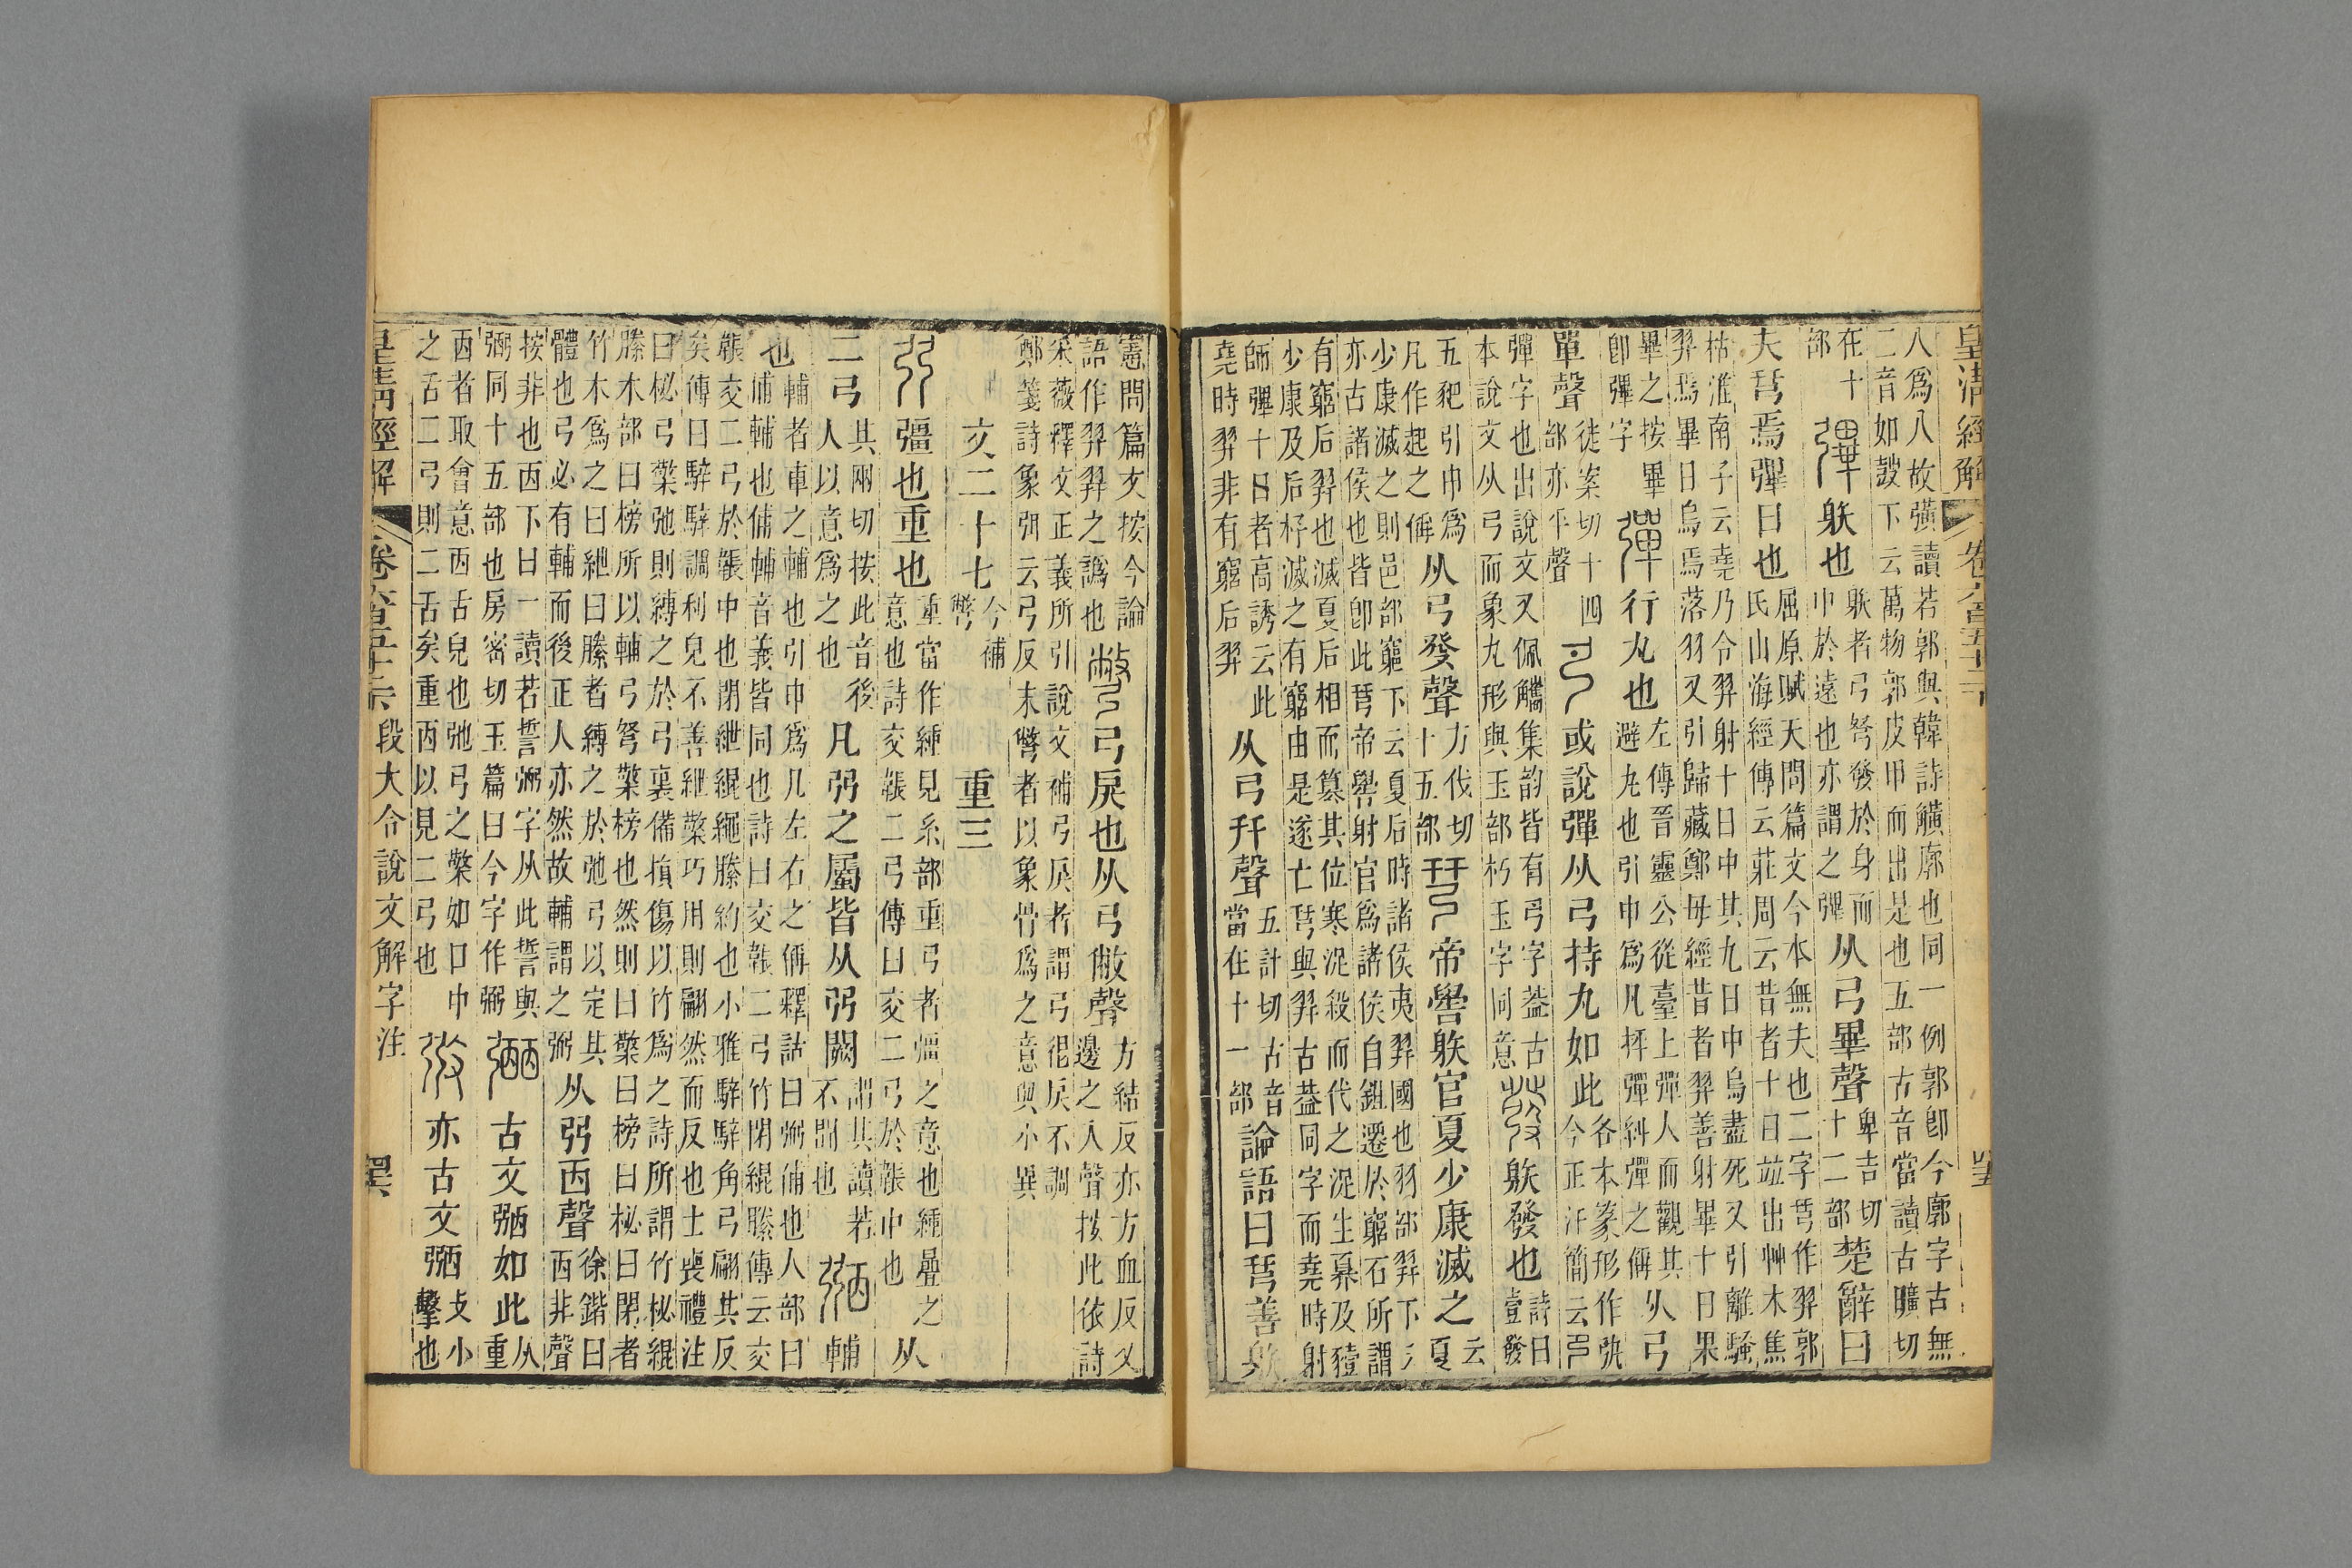 皇清經解
八爲八故彉讀若郭與韓詩彉廓也同一例郭卽今廓字古無
二音如彀下云萬物郭皮甲而出是也五部古音當讀古曠切
在十部 彃 䠶也 䠶者弓弩發於身而中於遠也亦謂之彈 从弓畢聲 卑吉切十二部 楚辭曰
夫𢎗焉彃日也 屈原賦天問篇文今本無夫也二字𢎗作羿郭氏山海經傳云莊周云昔者十日竝出艸木焦
枯淮南子云堯乃令羿射十日中其九日中烏盡死又引離騷
羿焉畢日烏焉落羽又引歸藏鄭毋經昔者羿善射畢十日果
畢之按畢卽彃字 彈 行丸也 左傳晉靈公從臺上彈人而觀其避丸也引申爲凡抨彈糾彈之偁 从弓
單聲 徒案切十四部亦平聲 或說彈从弓持丸如此 各本篆形作弞今正汗簡云
彈字也出說文又佩觿集韵皆有弓字葢古本說文从弓而象丸形與玉部朽玉字同意 發 䠶發也 詩曰壹發
五豝引申爲凡作起之偁 从弓癹聲 方伐切十五部 𢎗 帝嚳䠶官夏少康滅之 云夏
少康滅之則邑部竆下云夏后時諸侯夷羿國也羽部羿下云
亦古諸侯也皆卽此𢎗帝嚳射官爲諸侯自鉏遷於竆石所謂
有竆后羿也滅夏后相而篡其位寒浞殺而代之浞生奡及豷
少康及后杼滅之有竆由是遂亡𢎗與羿古葢同字而堯時射
師彈十日者高誘云此堯時羿非有竆后羿 从弓幵聲 五計切古音當在十一部 論語曰𢎗善䠶
憲問篇文按今論語作羿羿之譌也 彆 弓戾也从弓敝聲 方結反亦方血反又邊之入聲按此依詩
采薇釋文正義所引說文補弓戾者謂弓很戾不調
鄭箋詩象弭云弓反末彆者以象骨爲之意與小異
文二十七 今補彆 重三
弜 彊也重也 重當作緟見糸部重弓者彊之意也緟曡之意也詩交韔二弓傳曰交二弓於韔中也 从
二弓 其兩切按此音後人以意爲之也 凡弜之屬皆从弜闕 謂其讀若不聞也 弼 輔
也 輔者車之輔也引申爲凡左右之偁釋詁曰弼俌也人部曰俌輔也俌輔音義皆同也詩曰交韔二弓竹閉緄縢傳云交
韔交二弓於韔中也閉紲緄繩縢約也小雅騂騂角弓翩其反
矣傳曰騂騂調利皃不善紲檠巧用則翩然而反也士喪禮注
曰柲弓檠弛則縛之於弓裏備損傷以竹爲之詩所謂竹柲緄
縢木部曰榜所以輔弓弩檠榜也然則曰檠曰榜曰柲曰閉者
竹木爲之曰紲曰縢者縛之於弛弓以定其
體也弓必有輔而後正人亦然故輔謂之弼 从弜㐁聲 徐鍇曰㐁非聲
按非也㐁下曰一讀若誓弼字从此誓與弼同十五部也房密切玉篇曰今字作弼 古文弼如此 从重
㐁者取會意㐁舌皃也弛弓之檠如口中之舌二弓則二舌矣重㐁以見二弓也 亦古文弼 攴小擊也
皇清經解
段大令說文解字注